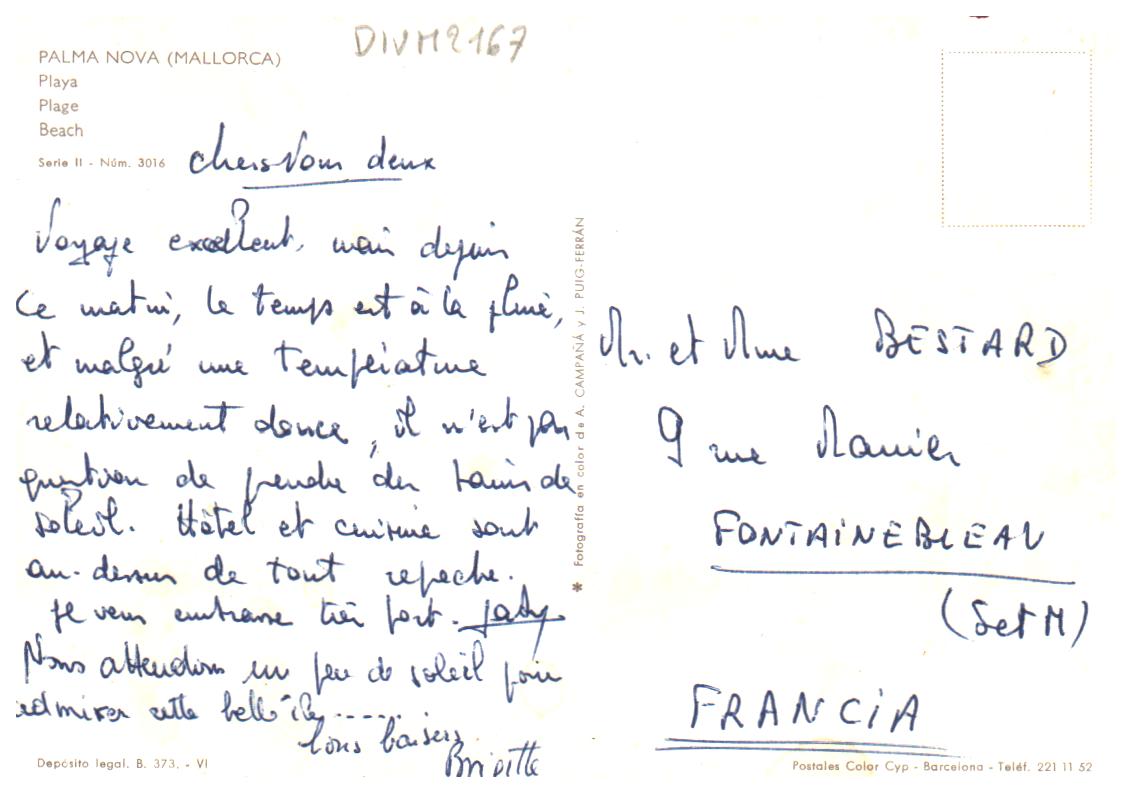 DIVM2167
PALMA NOVA (MALLORCA)
Playa
Plage
Beach
Serie II - Núm. 3016
chers Vous deux
Voyage excellent, mais depuis
ce matin, le temps est à la pluie,
et malgré une température
relativement douce, il n'est pas
question de prendre des bains de
soleil. Hôtel et cuisine sont
au-dessus de tout reproche.
Je vous embrasse très fort.
Nous attendons un peu de soleil pour
admirer cette belle île......
bons baisers
Brigitte
Depósito legal. B. 373. - VI
✱ Fotografía en color de A. CAMPAÑÁ y J. PUIG-FERRÁN
Mr. et Mme BESTARD
9 rue
FONTAINEBLEAU
(S et M)
FRANCIA
Postales Color Cyp - Barcelona - Teléf. 221 11 52